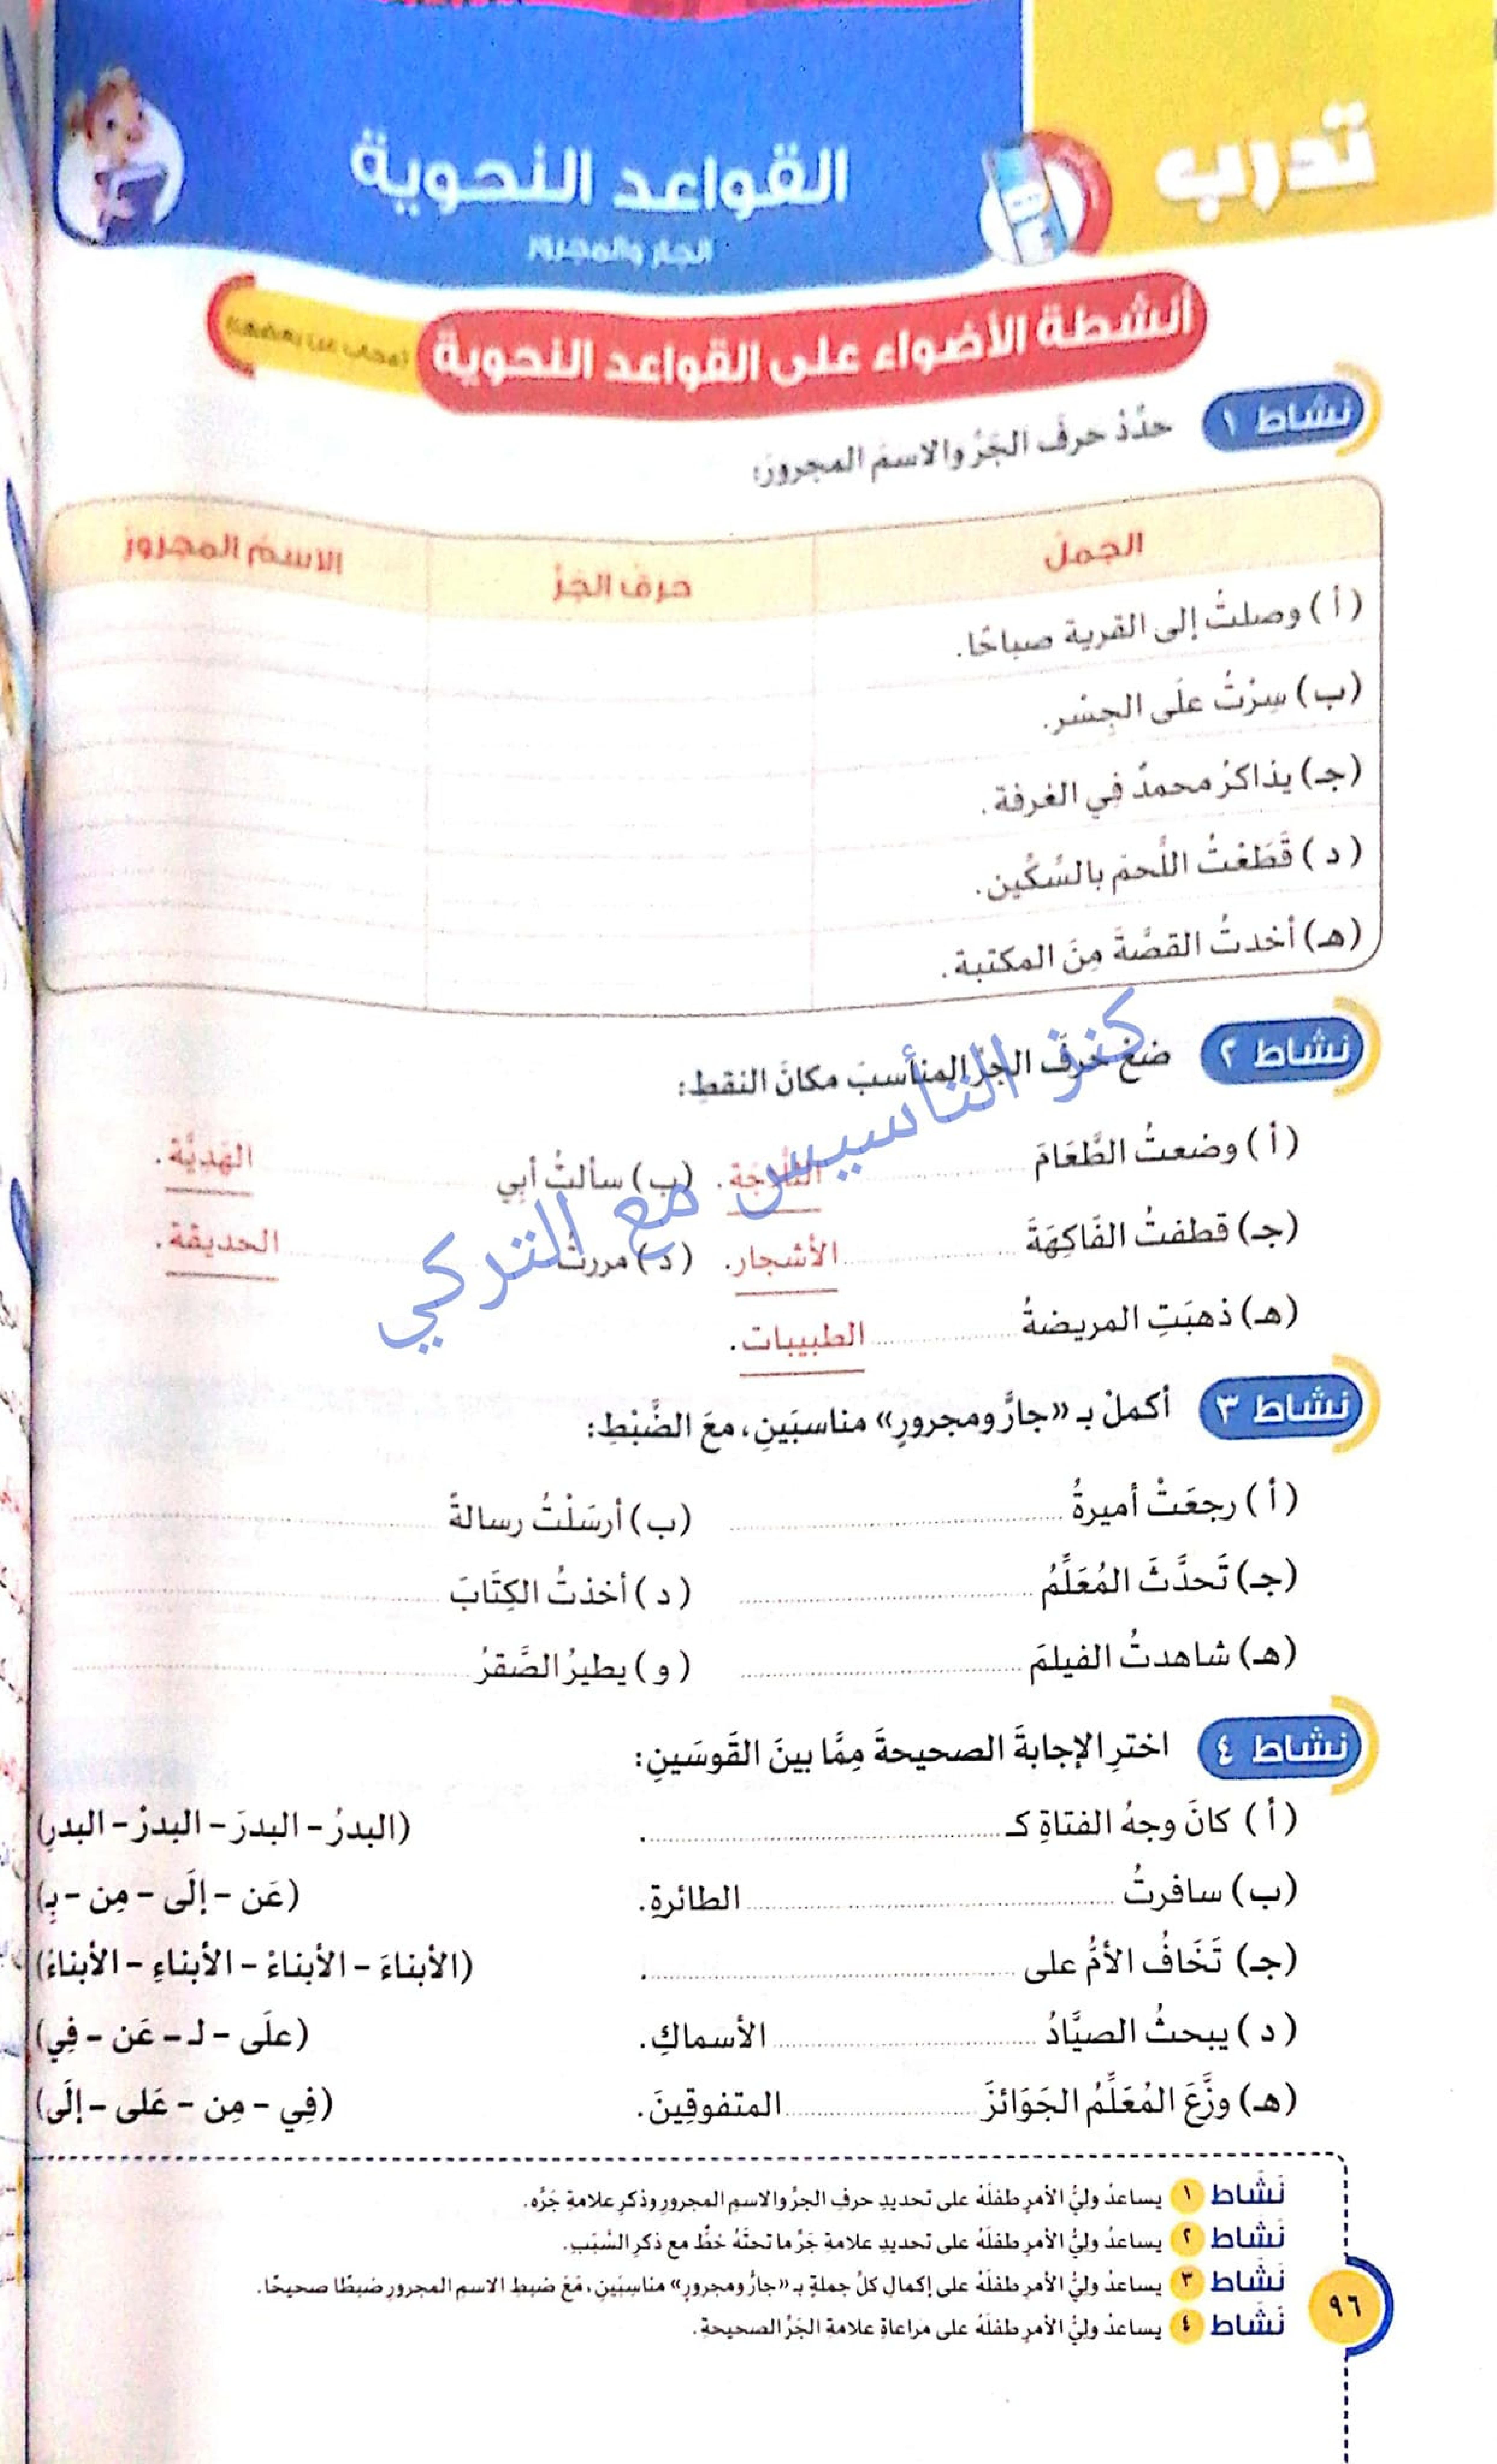 تدرب
القواعد النحوية
الجار والمجرور
أنشطة الأضواء على القواعد النحوية
نشاط ١ حدِّدْ حرفَ الجَرِّ والاسمَ المجرورَ:
الجملُ حرفُ الجَرِّ الاسمُ المجرورُ
(أ) وصلتُ إلى القرية صباحًا.
(ب) سِرْتُ علَى الجِسْر.
(جـ) يذاكرُ محمدٌ فِي الغرفة.
(د) قَطَعْتُ اللَّحمَ بالسِّكِّين.
(هـ) أخدتُ القصَّةَ مِنَ المكتبة.
نشاط ٢ ضعْ حرفَ الجرِّ المناسبَ مكانَ النقطِ:
(أ) وضعتُ الطَّعَامَ الثَّلاجَة. (ب) سألتُ أبِي الهَديَّة.
(جـ) قطفتُ الفَاكِهَةَ الأشجار. (د) مررتُ الحديقة.
(هـ) ذهبَتِ المريضةُ الطبيبات.
كنز التأسيس مع التركي
نشاط ٣ أكملْ بـ «جارٍّ ومجرورٍ» مناسبَينِ، معَ الضَّبْطِ:
(أ) رجعَتْ أميرةُ (ب) أرسَلْتُ رسالةً
(جـ) تَحدَّثَ المُعَلِّمُ (د) أخذتُ الكِتَابَ
(هـ) شاهدتُ الفيلمَ (و) يطيرُ الصَّقرُ
نشاط ٤ اخترِ الإجابةَ الصحيحةَ مِمَّا بينَ القَوسَينِ:
(أ) كانَ وجهُ الفتاةِ كـ . (البدرُ – البدرَ – البدرْ – البدرِ)
(ب) سافرتُ الطائرةِ. (عَن – إلَى – مِن – بِـ)
(جـ) تَخَافُ الأمُّ على . (الأبناءَ – الأبناءْ – الأبناءِ – الأبناءُ)
(د) يبحثُ الصيَّادُ الأسماكِ. (علَى – لـ – عَن – فِي)
(هـ) وزَّعَ المُعَلِّمُ الجَوَائزَ المتفوقِينَ. (فِي – مِن – عَلى – إلَى)
نَشَاط ١ يساعدُ وليُّ الأمرِ طفلَهُ على تحديدِ حرفِ الجرِّ والاسمِ المجرورِ وذكرِ علامةِ جَرِّه.
نَشَاط ٢ يساعدُ وليُّ الأمرِ طفلَهُ على تحديدِ علامةِ جَرِّ ما تحتَهُ خطٌّ مع ذكرِ السَّبَبِ.
نَشَاط ٣ يساعدُ وليُّ الأمرِ طفلَهُ على إكمالِ كلِّ جملةٍ بـ «جارٍّ ومجرورٍ» مناسِبَينِ، مَعَ ضبطِ الاسمِ المجرورِ ضبطًا صحيحًا.
نَشَاط ٤ يساعدُ وليُّ الأمرِ طفلَهُ على مراعاةِ علامةِ الجَرِّ الصحيحةِ.
٩٦